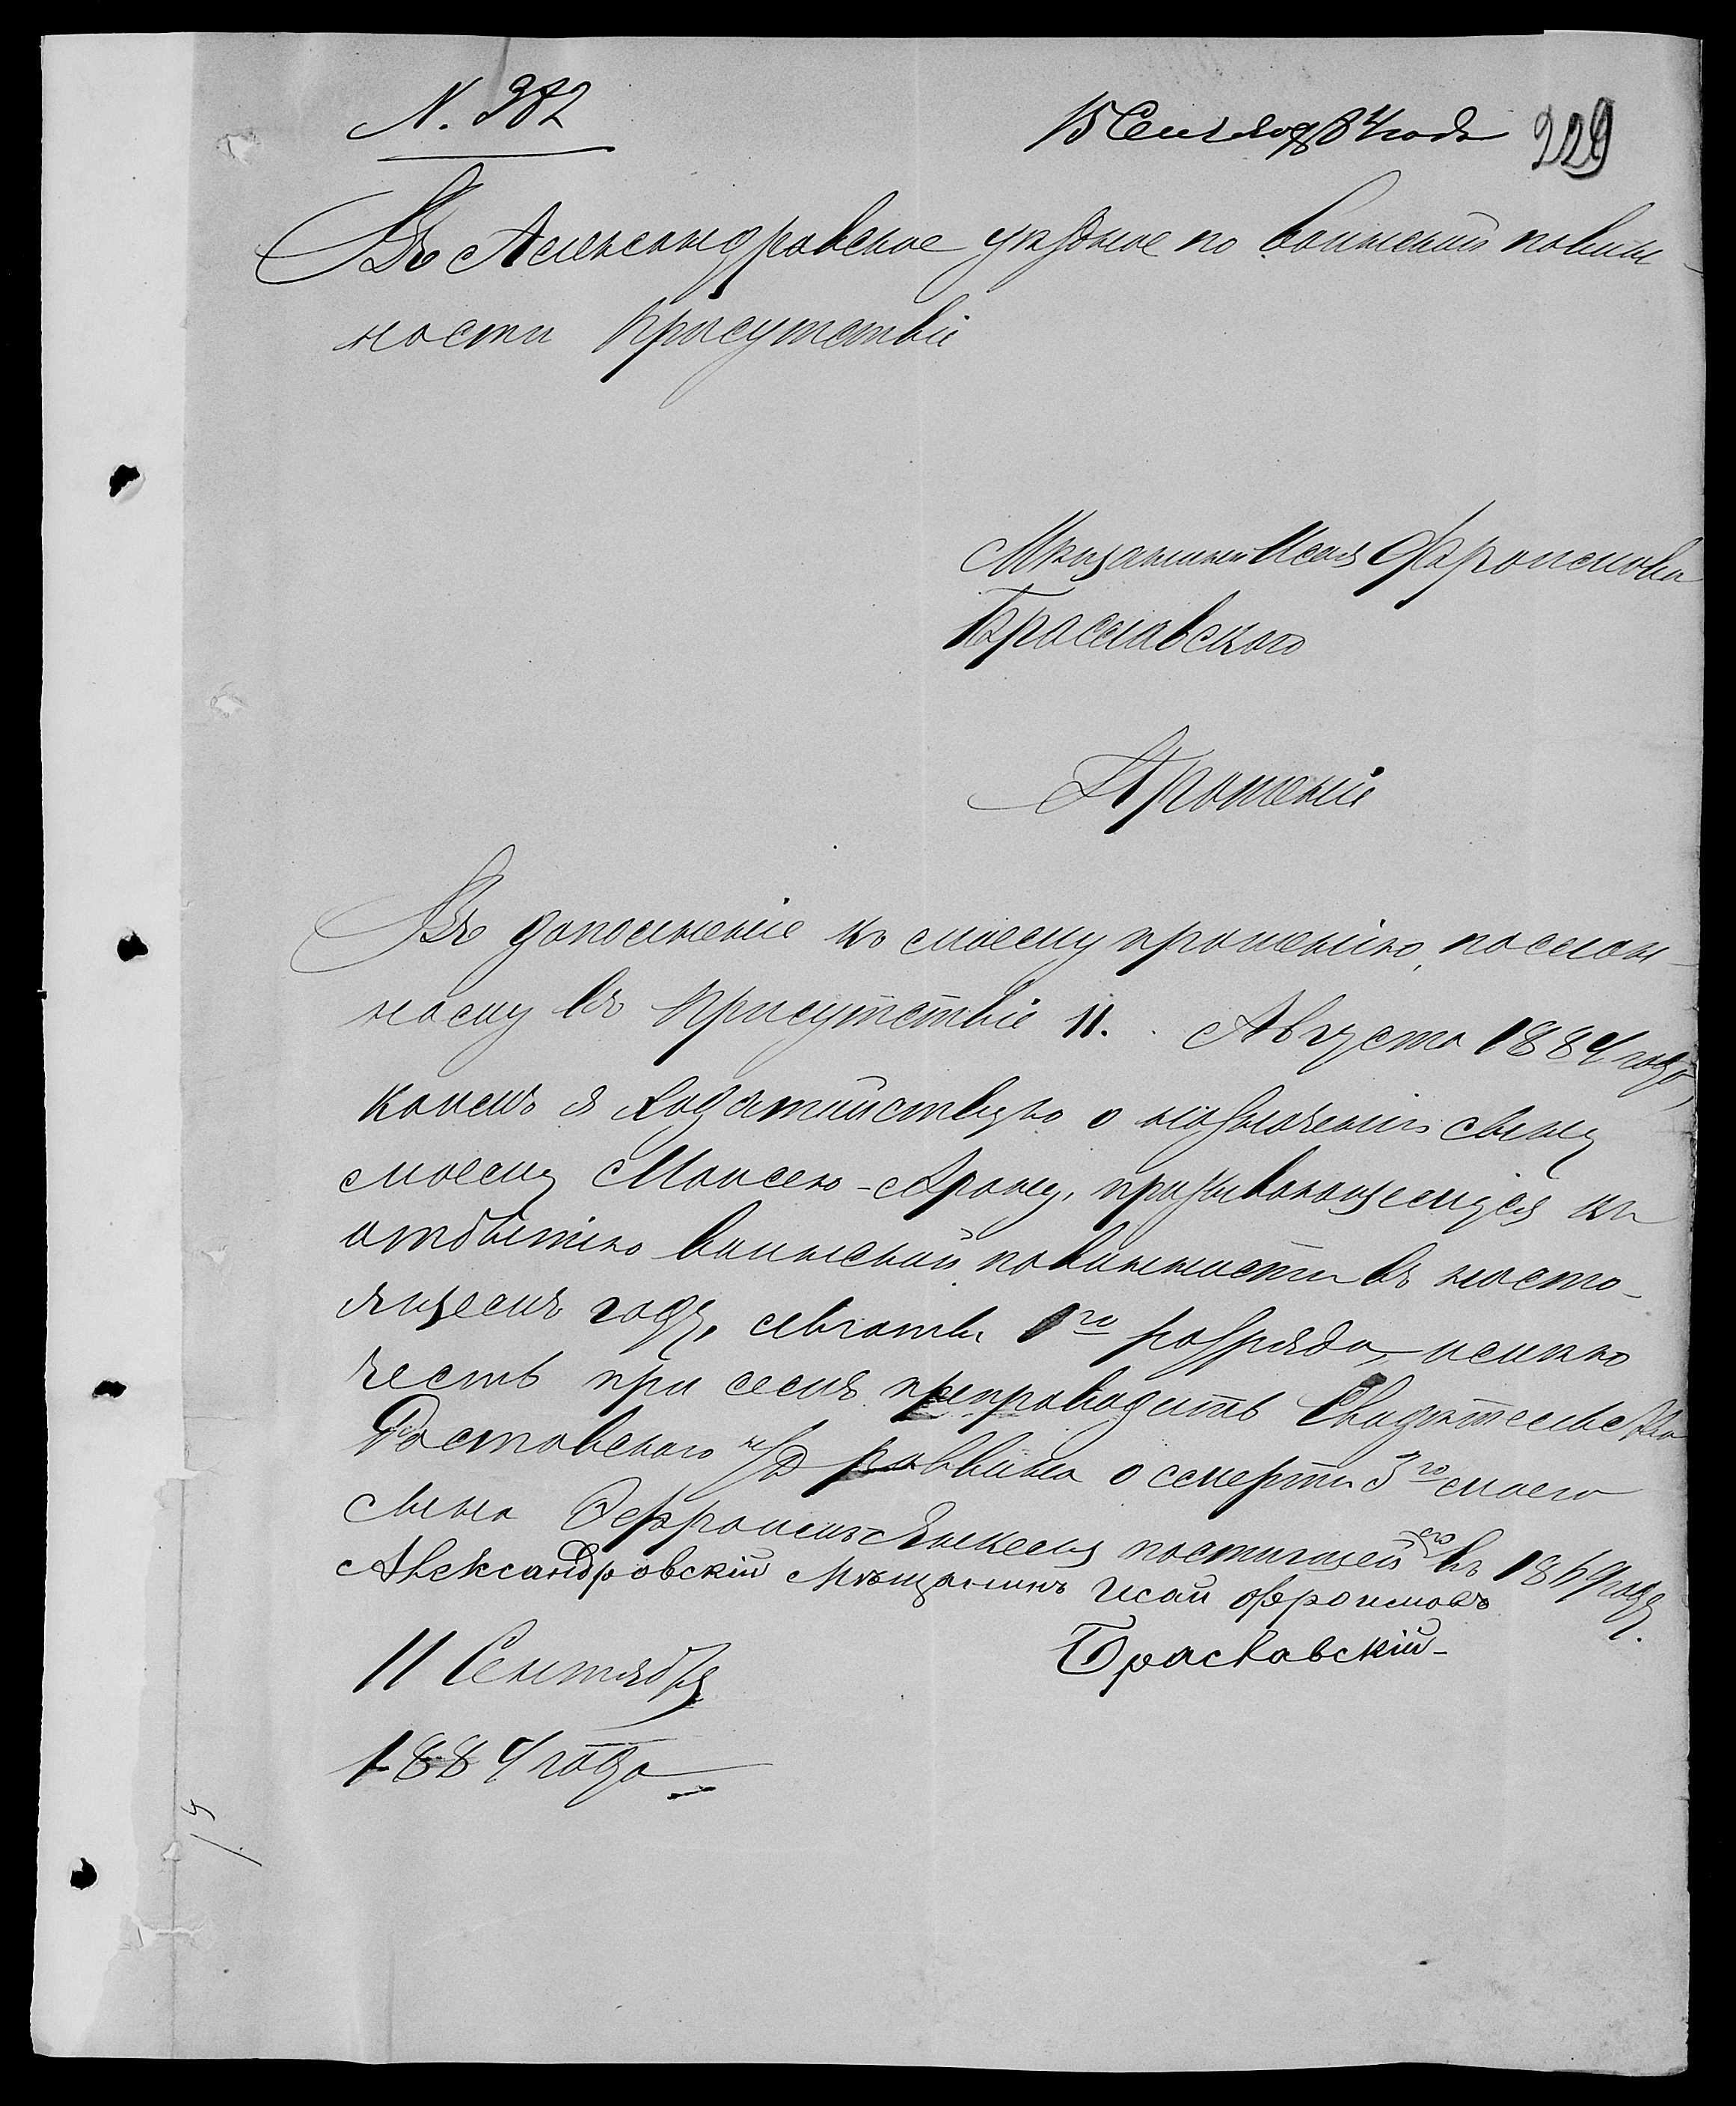 N. 382
15 Сентября 84 года 229
Въ Александровское уѣздное по воинской повин-
ности Присутствіе
Мѣщанина Исая Эфроимова
Браславскаго
Прошеніе
Въ дополненіе къ моему прошенію, послан-
ному въ Присутствіе 11. Августа 1884 года,
коимъ я ходатайствую о назначеніи сыну
моему Моисею-Арону, призывающемуся къ
отбытію воинской повинности въ насто-
ящемъ году, льготы 1го разряда, имѣю
честь при семъ препроводить Свидѣтельство
Ростовского н/Д раввина о смерти 3го моего
сына Эфроимъ постигшей его въ 1869 году.
Александровскій Мѣщанинъ Исай Эфроимовъ
Браславскій-
11 Сентября
1884 года